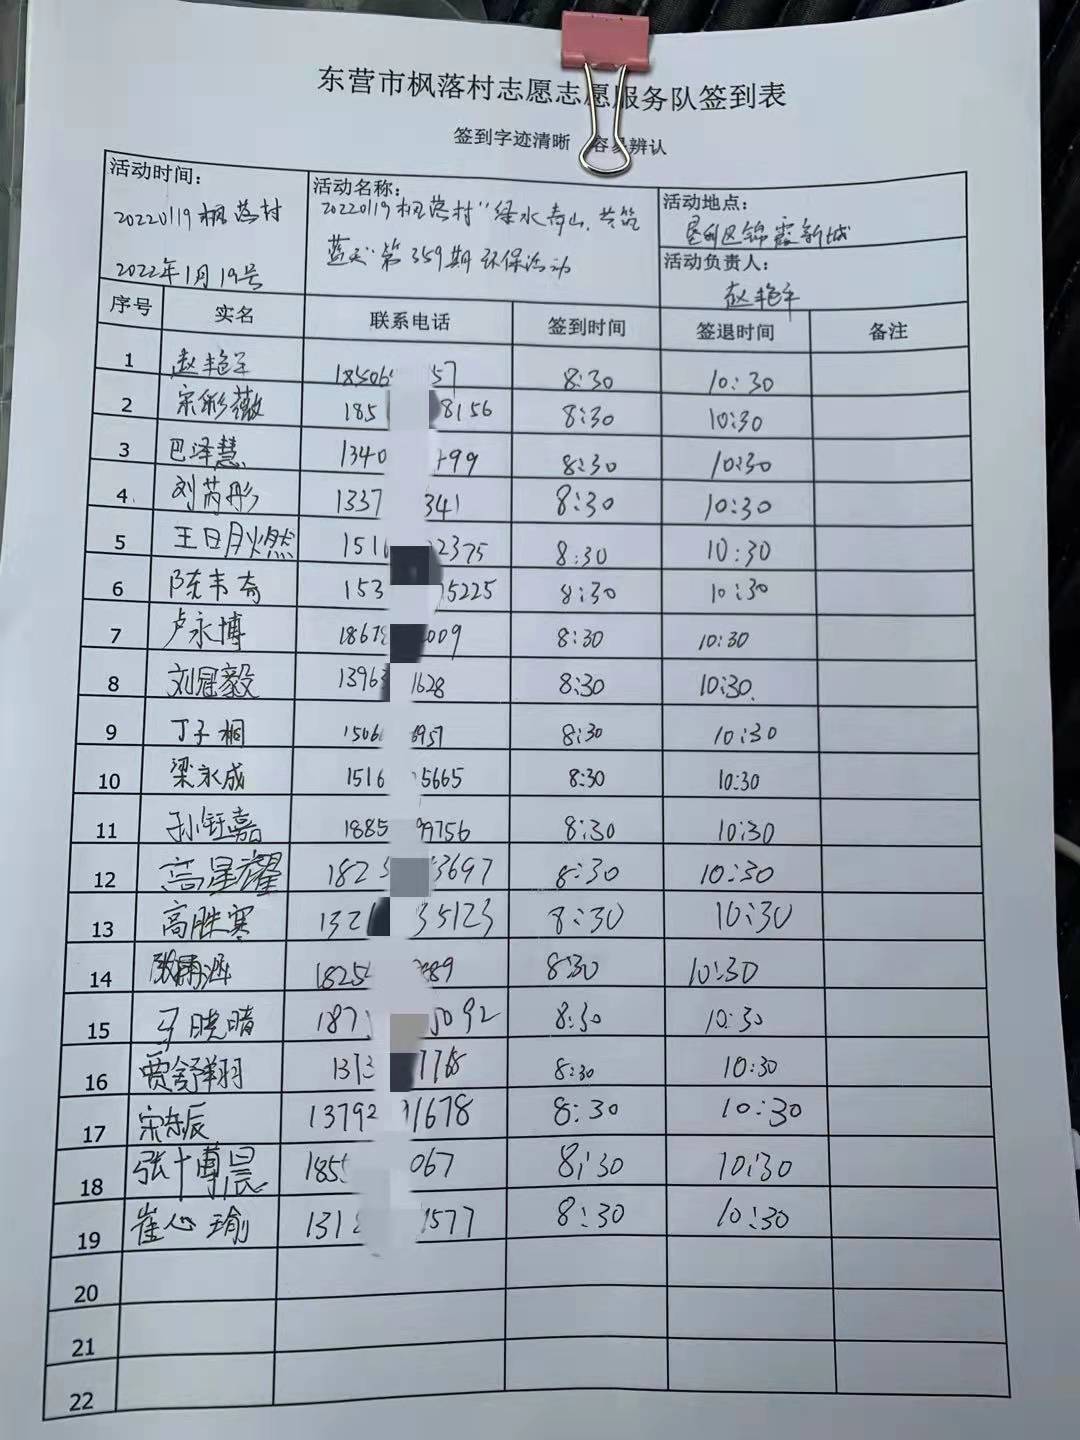 东营市枫落村志愿志愿服务队签到表
签到字迹清晰 容易辨认
活动时间：
20220119枫落村
2022年1月19号
活动名称：
20220119枫落村“绿水青山，共筑
蓝天”第359期环保活动
活动地点：
垦利区锦霞新城
活动负责人：
赵艳军
序号 实名 联系电话 签到时间 签退时间 备注
1 赵艳军 18506 57 8:30 10:30
2 宋彩薇 185 8156 8:30 10:30
3 巴泽慧 1340 499 8:30 10:30
4 刘芮彤 1337 341 8:30 10:30
5 王日月火燃 151 2375 8:30 10:30
6 陈韦奇 153 5225 8:30 10:30
7 卢永博 1867 009 8:30 10:30
8 刘冠毅 1396 1628 8:30 10:30
9 丁子桐 1506 957 8:30 10:30
10 梁永成 1516 5665 8:30 10:30
11 孙钰嘉 1885 99756 8:30 10:30
12 高星耀 182 3697 8:30 10:30
13 高胜寒 132 35123 8:30 10:30
14 张雨涵 1825 89 8:30 10:30
15 马晓晴 187 5092 8:30 10:30
16 贾舒翔 1373 7768 8:30 10:30
17 宋东辰 13792 1678 8:30 10:30
18 张博晨 185 067 8:30 10:30
19 崔心瑜 1318 1577 8:30 10:30
20
21
22